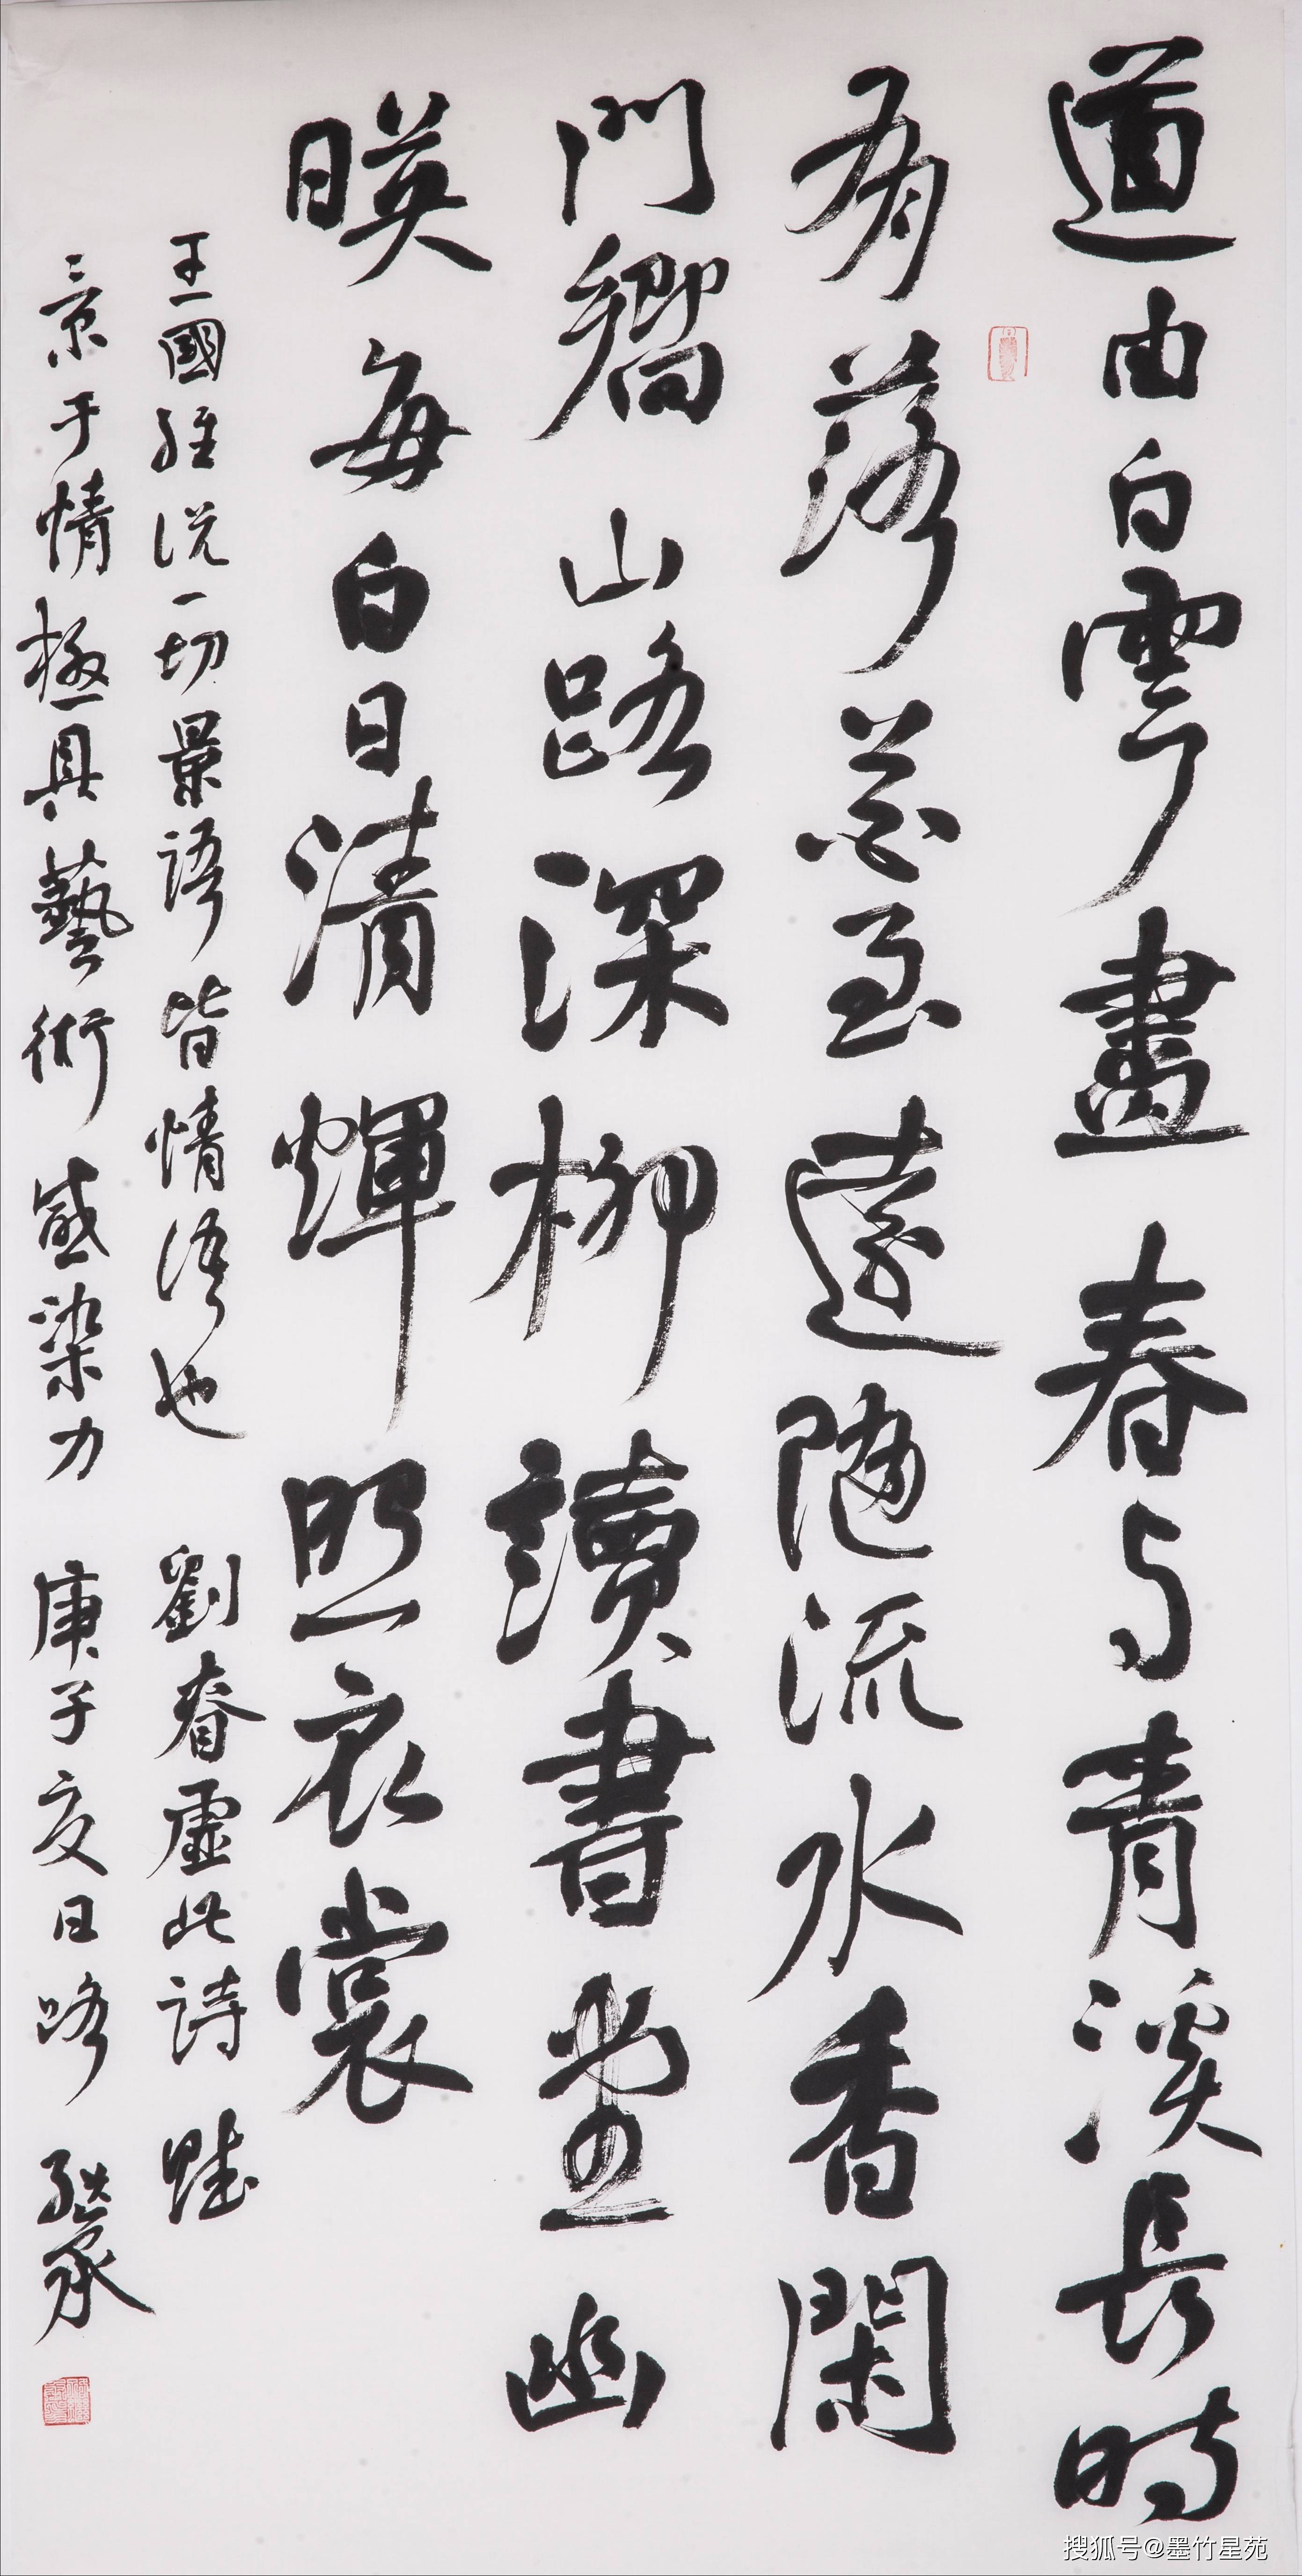 道由白雲盡春与青溪長時
有落花至遠隨流水香閑
門嚮山路深柳讀書堂幽
暎每白日清煇照衣裳
王國維说一切景語皆情语也 劉眘虛此詩賦
景于情極具藝術感染力 庚子夏日
搜狐号@墨竹星苑